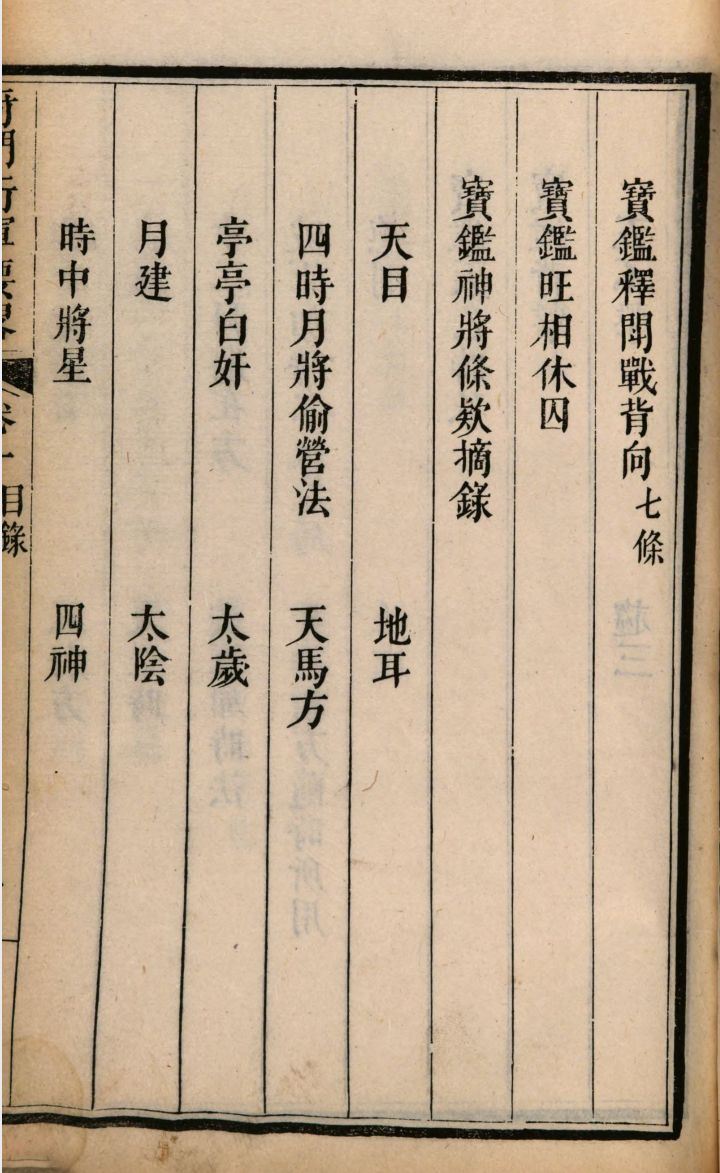 寶鑑釋鬦戰背向七條
寶鑑旺相休囚
寶鑑神將條欵摘錄
天目　地耳
四時月將偷營法　天馬方
亭亭白奸　太歲
月建　太陰
時中將星　四神
卷一　目錄